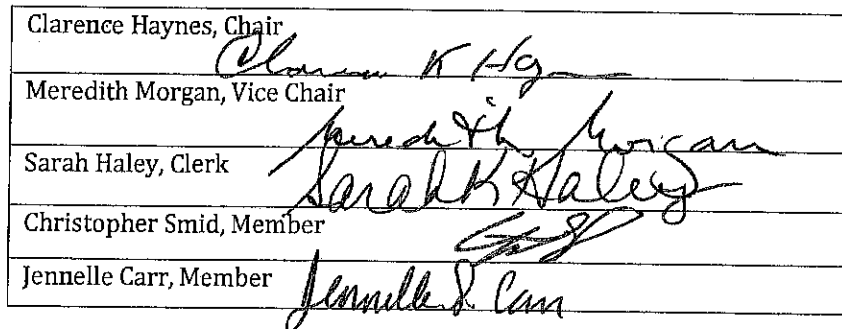 Clarence Haynes, Chair
Clarence K Hayn
Meredith Morgan, Vice Chair
Meredith Morgan
Sarah Haley, Clerk
Sarah K Haley
Christopher Smid, Member
Jennelle Carr, Member
Jennelle S. Carr